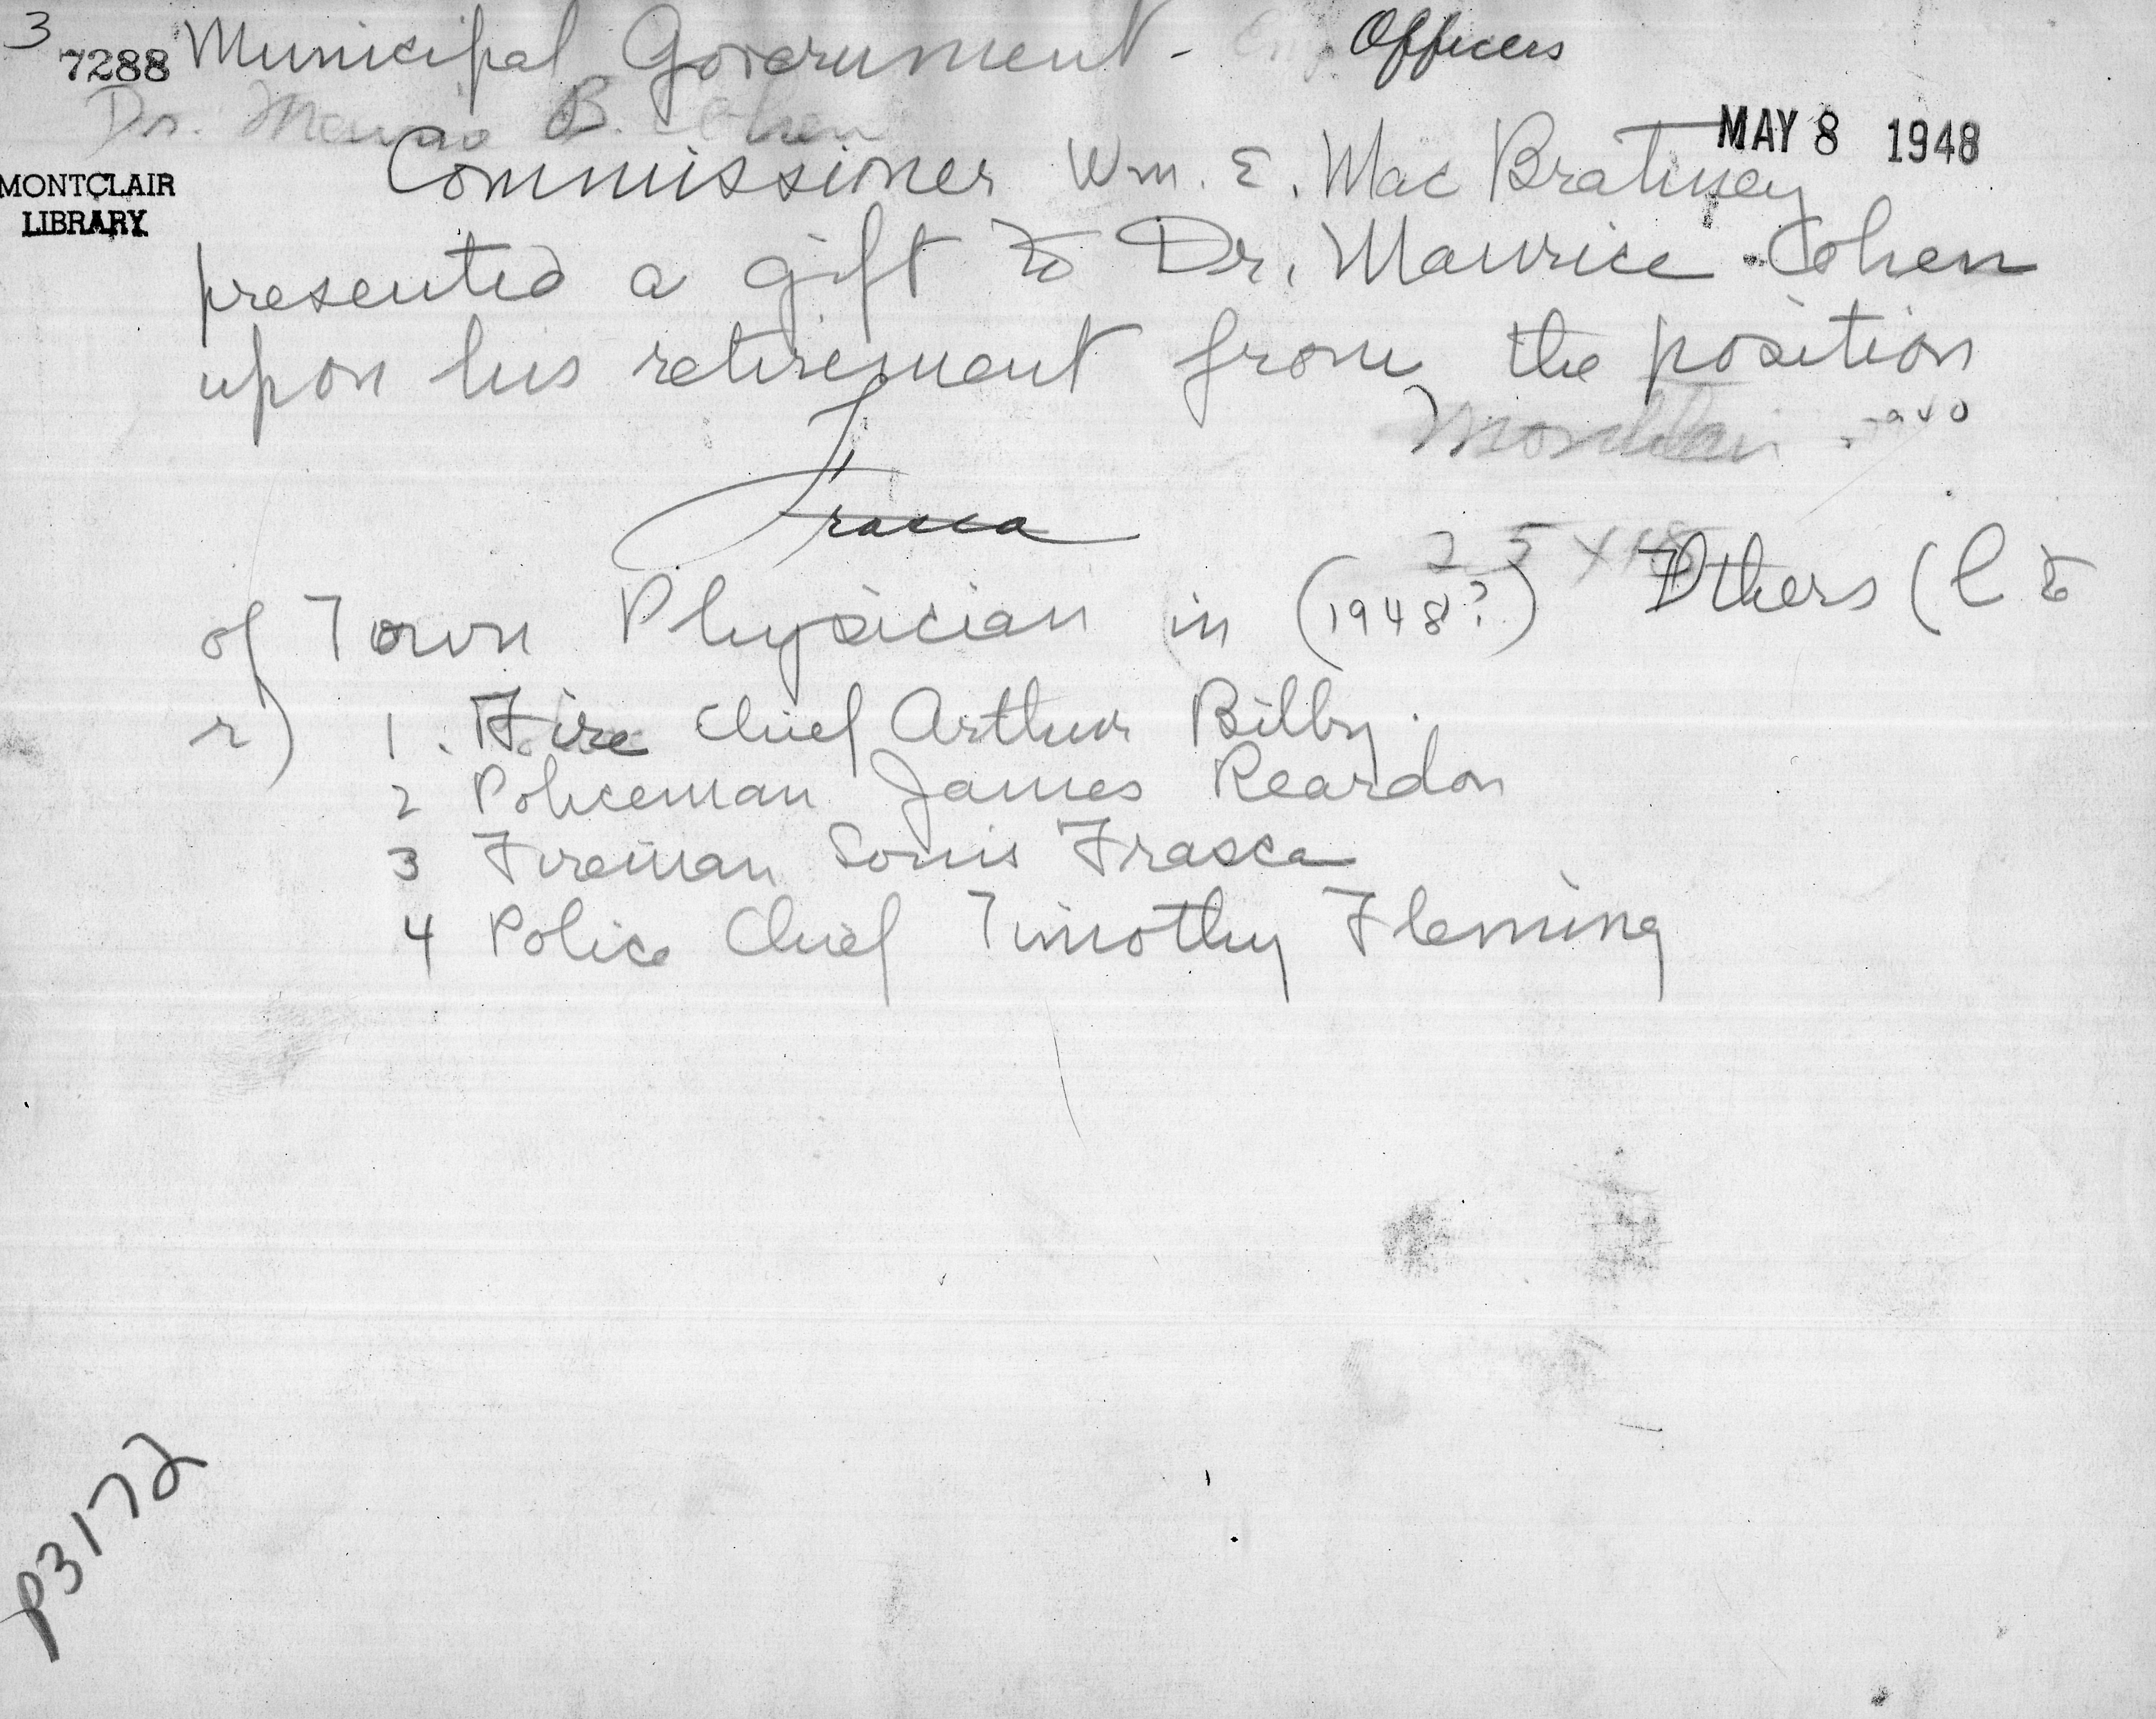 3
7288 Municipal Government - Officers
Dr. B. Cohen
MAY 8 1948
Commissioner Wm. E. Mac Bratney
MONTCLAIR
LIBRARY
presented a gift to Dr. Maurice Cohen
upon his retirement from the position
Montclair
Frasca
25 X
of Town Physician in (1948?) Others (l to
r) 1. Fire Chief Arthur Bilby.
2 Policeman James Reardon
3 Fireman Frasca
4 Police Chief Timothy Fleming
P3172